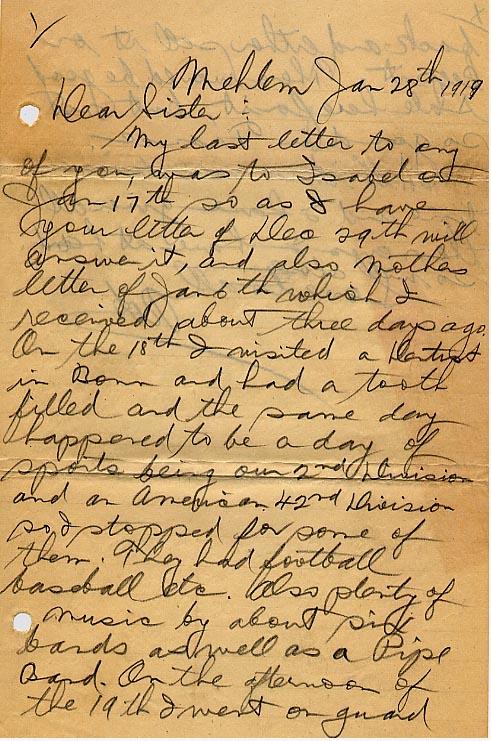 Mehlem Jan 28th 1919
Dear Sister:
My last letter to any
of you, was to Isabel on
Jan 17th so as I have
your letter of Dec 29th will
answer it, and also Mothers
letter of Jan 6th which I
received about three days ago.
On the 18th I visited a Dentist
in Bonn and had a tooth
filled and the same day
happened to be a day of
sports being our 2nd Division
and an American 42nd Division
so I stopped for some of
them. They had football
baseball etc. Also plenty of
music by about six
bands as well as a Pipe
Band. On the afternoon of
the 19th I went on guard